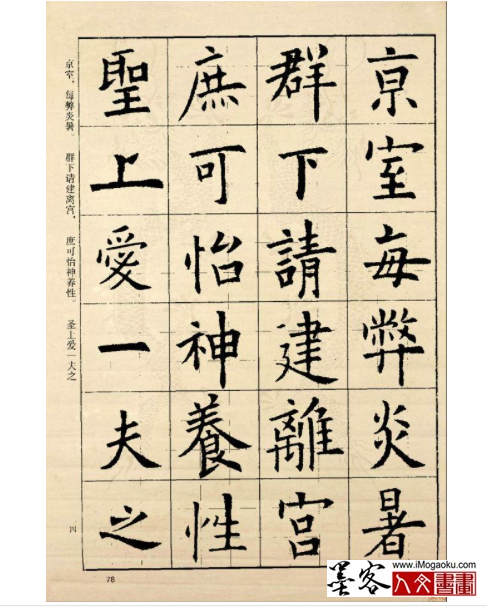 京室每弊炎暑
群下請建離宮
庶可怡神養性
聖上愛一夫之
京室，每弊炎暑。　群下请建离宫，　庶可怡神养性。　圣上爱一夫之
四
78
www.iMogaoku.com
墨客
人文書畫